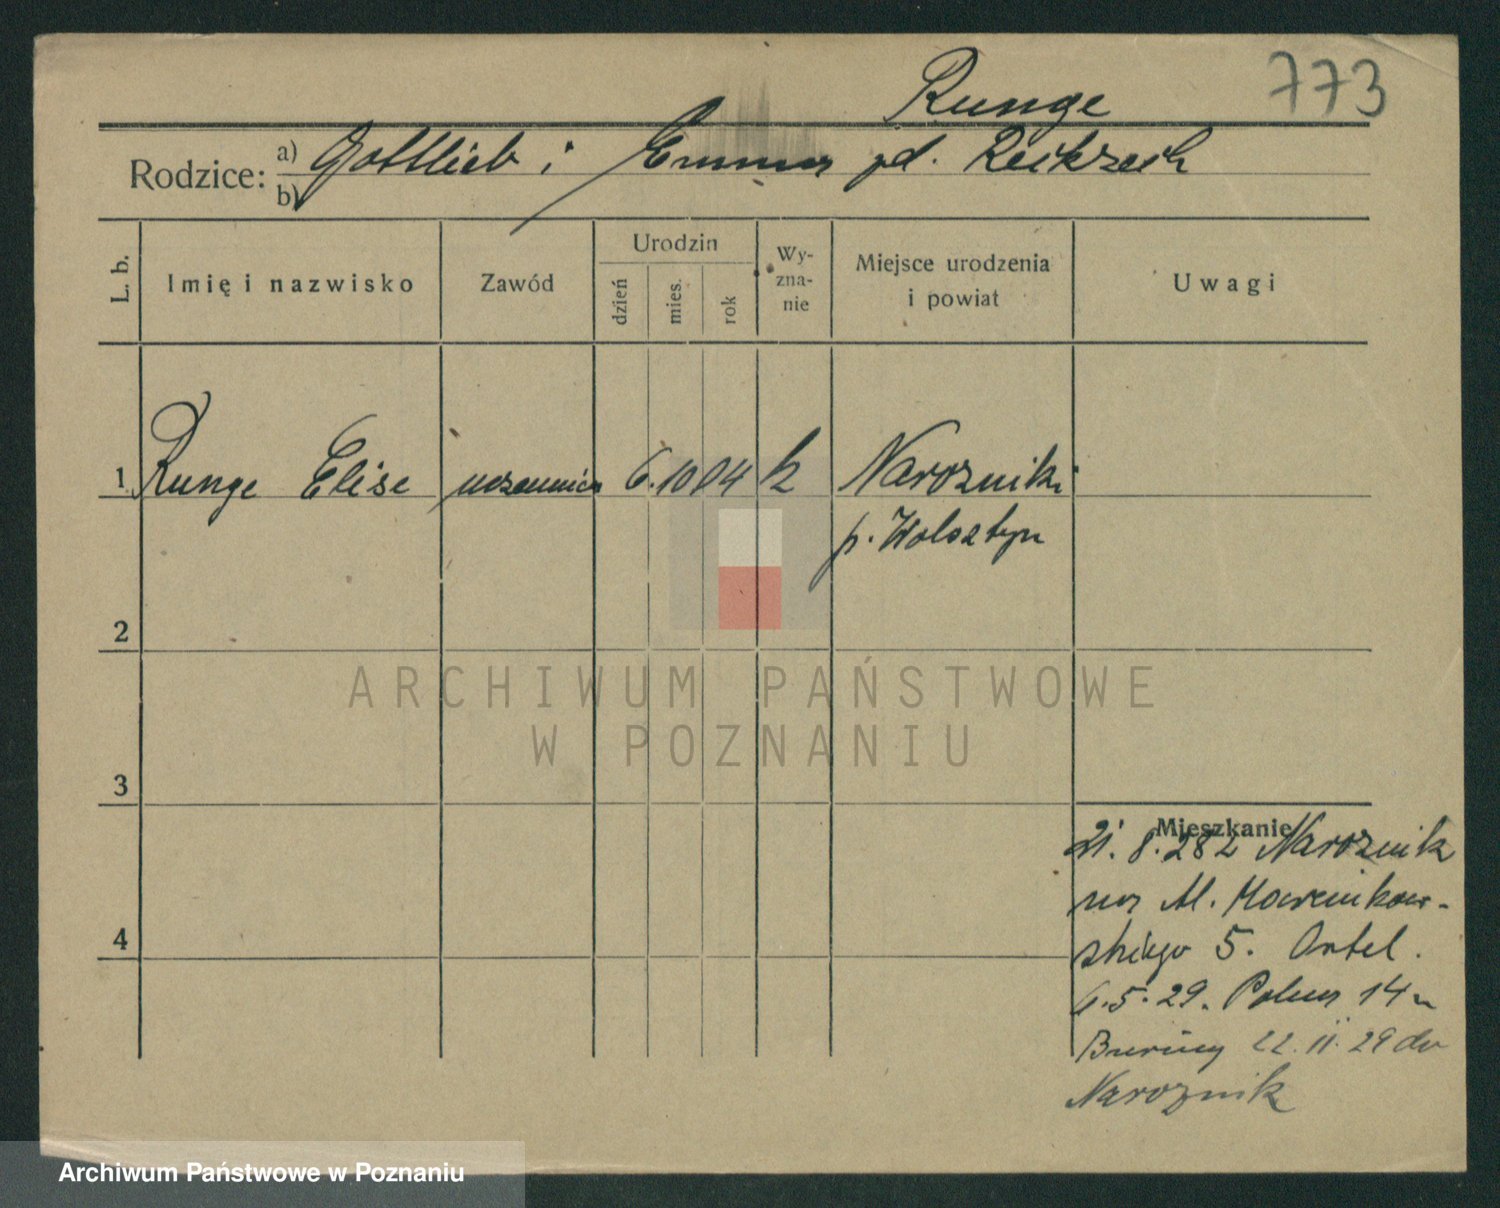 773
Runge
Rodzice: a) Gottlieb i Emma zd. Reikzeih
b)
L. b.
Imię i nazwisko
Zawód
Urodzin
dzień
mies.
rok
Wy-
zna-
nie
Miejsce urodzenia
i powiat
Uwagi
1 Runge Elise uczennica 6. 10 04 k Narozniki
p. Wolsztyn
2
3
4
Mieszkanie
21. 8. 28 z Naroznik
na Al. Marcinkow-
skiego 5.
6. 5. 29. 14
22. 11. 29 do
Naroznik
ARCHIWUM PAŃSTWOWE
W POZNANIU
Archiwum Państwowe w Poznaniu